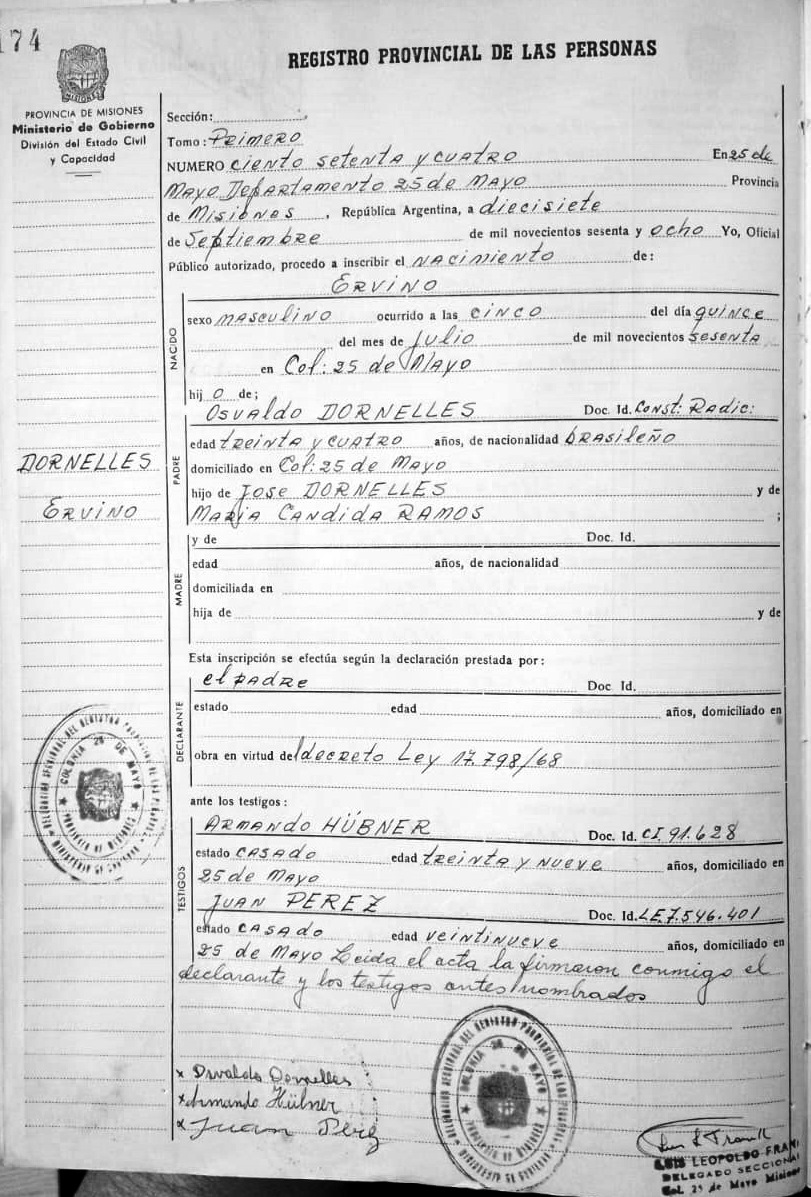 174
REGISTRO PROVINCIAL DE LAS PERSONAS
MISIONES
PROVINCIA DE MISIONES
Ministerio de Gobierno
División del Estado Civil
y Capacidad
Sección:
Tomo: Primero
NUMERO Ciento setenta y cuatro En 25 de
Mayo Departamento 25 de Mayo Provincia
de Misiones, República Argentina, a diecisiete
de Septiembre de mil novecientos sesenta y ocho Yo, Oficial
Público autorizado, procedo a inscribir el Nacimiento de:
Ervino
NACIDO
sexo masculino ocurrido a las cinco del día quince
del mes de Julio de mil novecientos sesenta
en Col: 25 de Mayo
hijo de;
Osvaldo DORNELLES Doc. Id. Const: Radic:
PADRE
edad treinta y cuatro años, de nacionalidad brasileño
domiciliado en Col: 25 de Mayo
hijo de Jose DORNELLES y de
Maria Candida RAMOS ;
DORNELLES
Ervino
MADRE
y de Doc. Id.
edad años, de nacionalidad
domiciliada en
hija de y de
Esta inscripción se efectúa según la declaración prestada por:
el padre Doc Id.
DECLARANTE
estado edad años, domiciliado en
obra en virtud del decreto Ley 17.798/68
COLONIA 25 DE MAYO
PROVINCIA DE MISIONES
ante los testigos:
Armando HÜBNER Doc. Id. CI 91.628
TESTIGOS
estado casado edad treinta y nueve años, domiciliado en
25 de Mayo
Juan PEREZ Doc. Id. LE 7.546.401
estado casado edad veintinueve años, domiciliado en
25 de Mayo Leida el acta la firmaron conmigo el
declarante y los testigos antes nombrados
x Osvaldo Dornelles
x Armando Hübner
x Juan Perez
COLONIA 25 DE MAYO
PROVINCIA DE MISIONES
LUIS LEOPOLDO
DELEGADO SECCIONAL
Col. 25 de Mayo Misiones